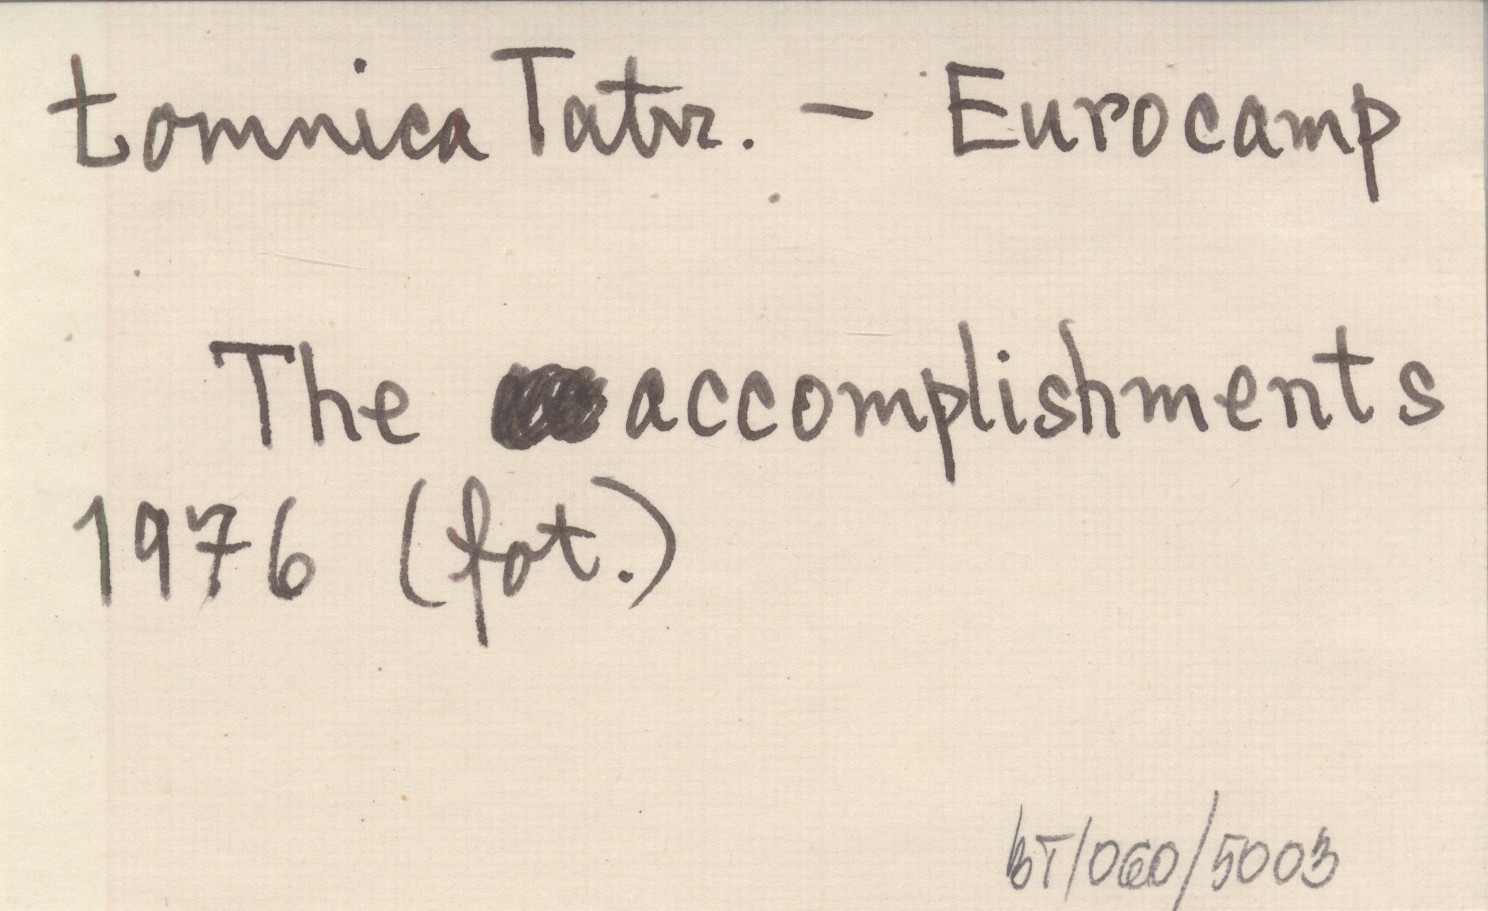 Łomnica Tatrz. – Eurocamp
The accomplishments
1976 (fot.)
bT/060/5003